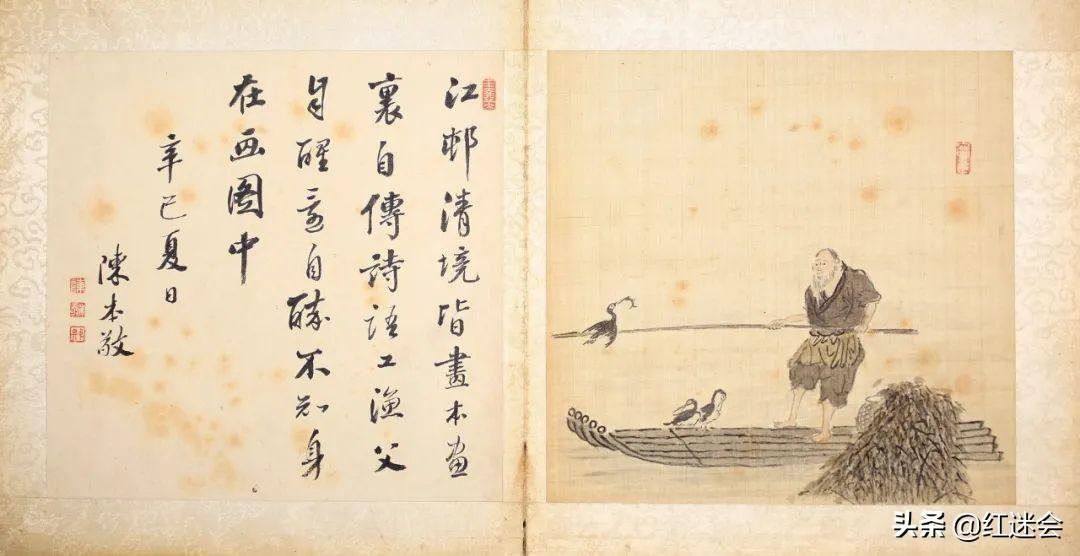 江邨清境皆畫本畫
裏自傳詩語工漁父
自醒還自醉不知身
在画圖中
辛巳夏日
陳本敬
头条 @红迷会